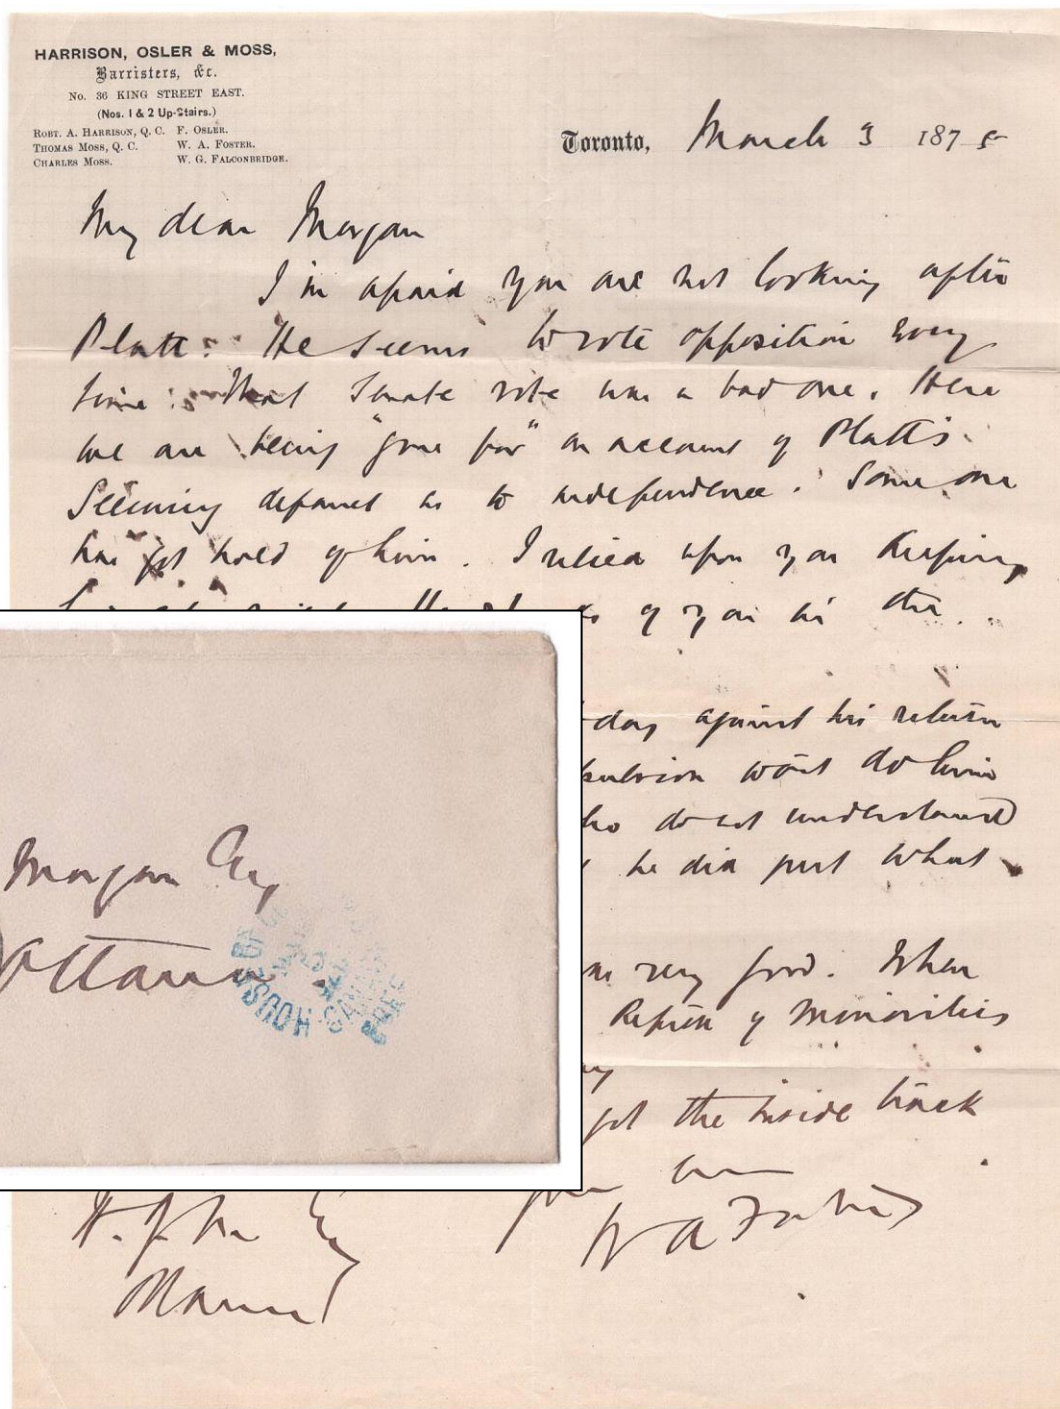 HARRISON, OSLER & MOSS,
Barristers, &c.
No. 36 KING STREET EAST.
(Nos. 1 & 2 Up-Stairs.)
ROBT. A. HARRISON, Q. C. F. OSLER.
THOMAS MOSS, Q. C. W. A. FOSTER.
CHARLES MOSS. W. G. FALCONBRIDGE.
Toronto, March 3 1875
My dear Morgan
I'm afraid you are not looking after
Platt. He seems to vote opposition every
time. That Senate vote was a bad one. Here
we are being "gone for" on account of Platt's
seeming defiance as to independence. Some one
has got hold of him. I relied upon you keeping
of you in the
day against his return
won't do him
do not understand
he did just what
very good. When
of Minorities
got the inside track
W A Foster
Morgan Esq
Ottawa
HOUSE
CANADA
Esq
Ottawa